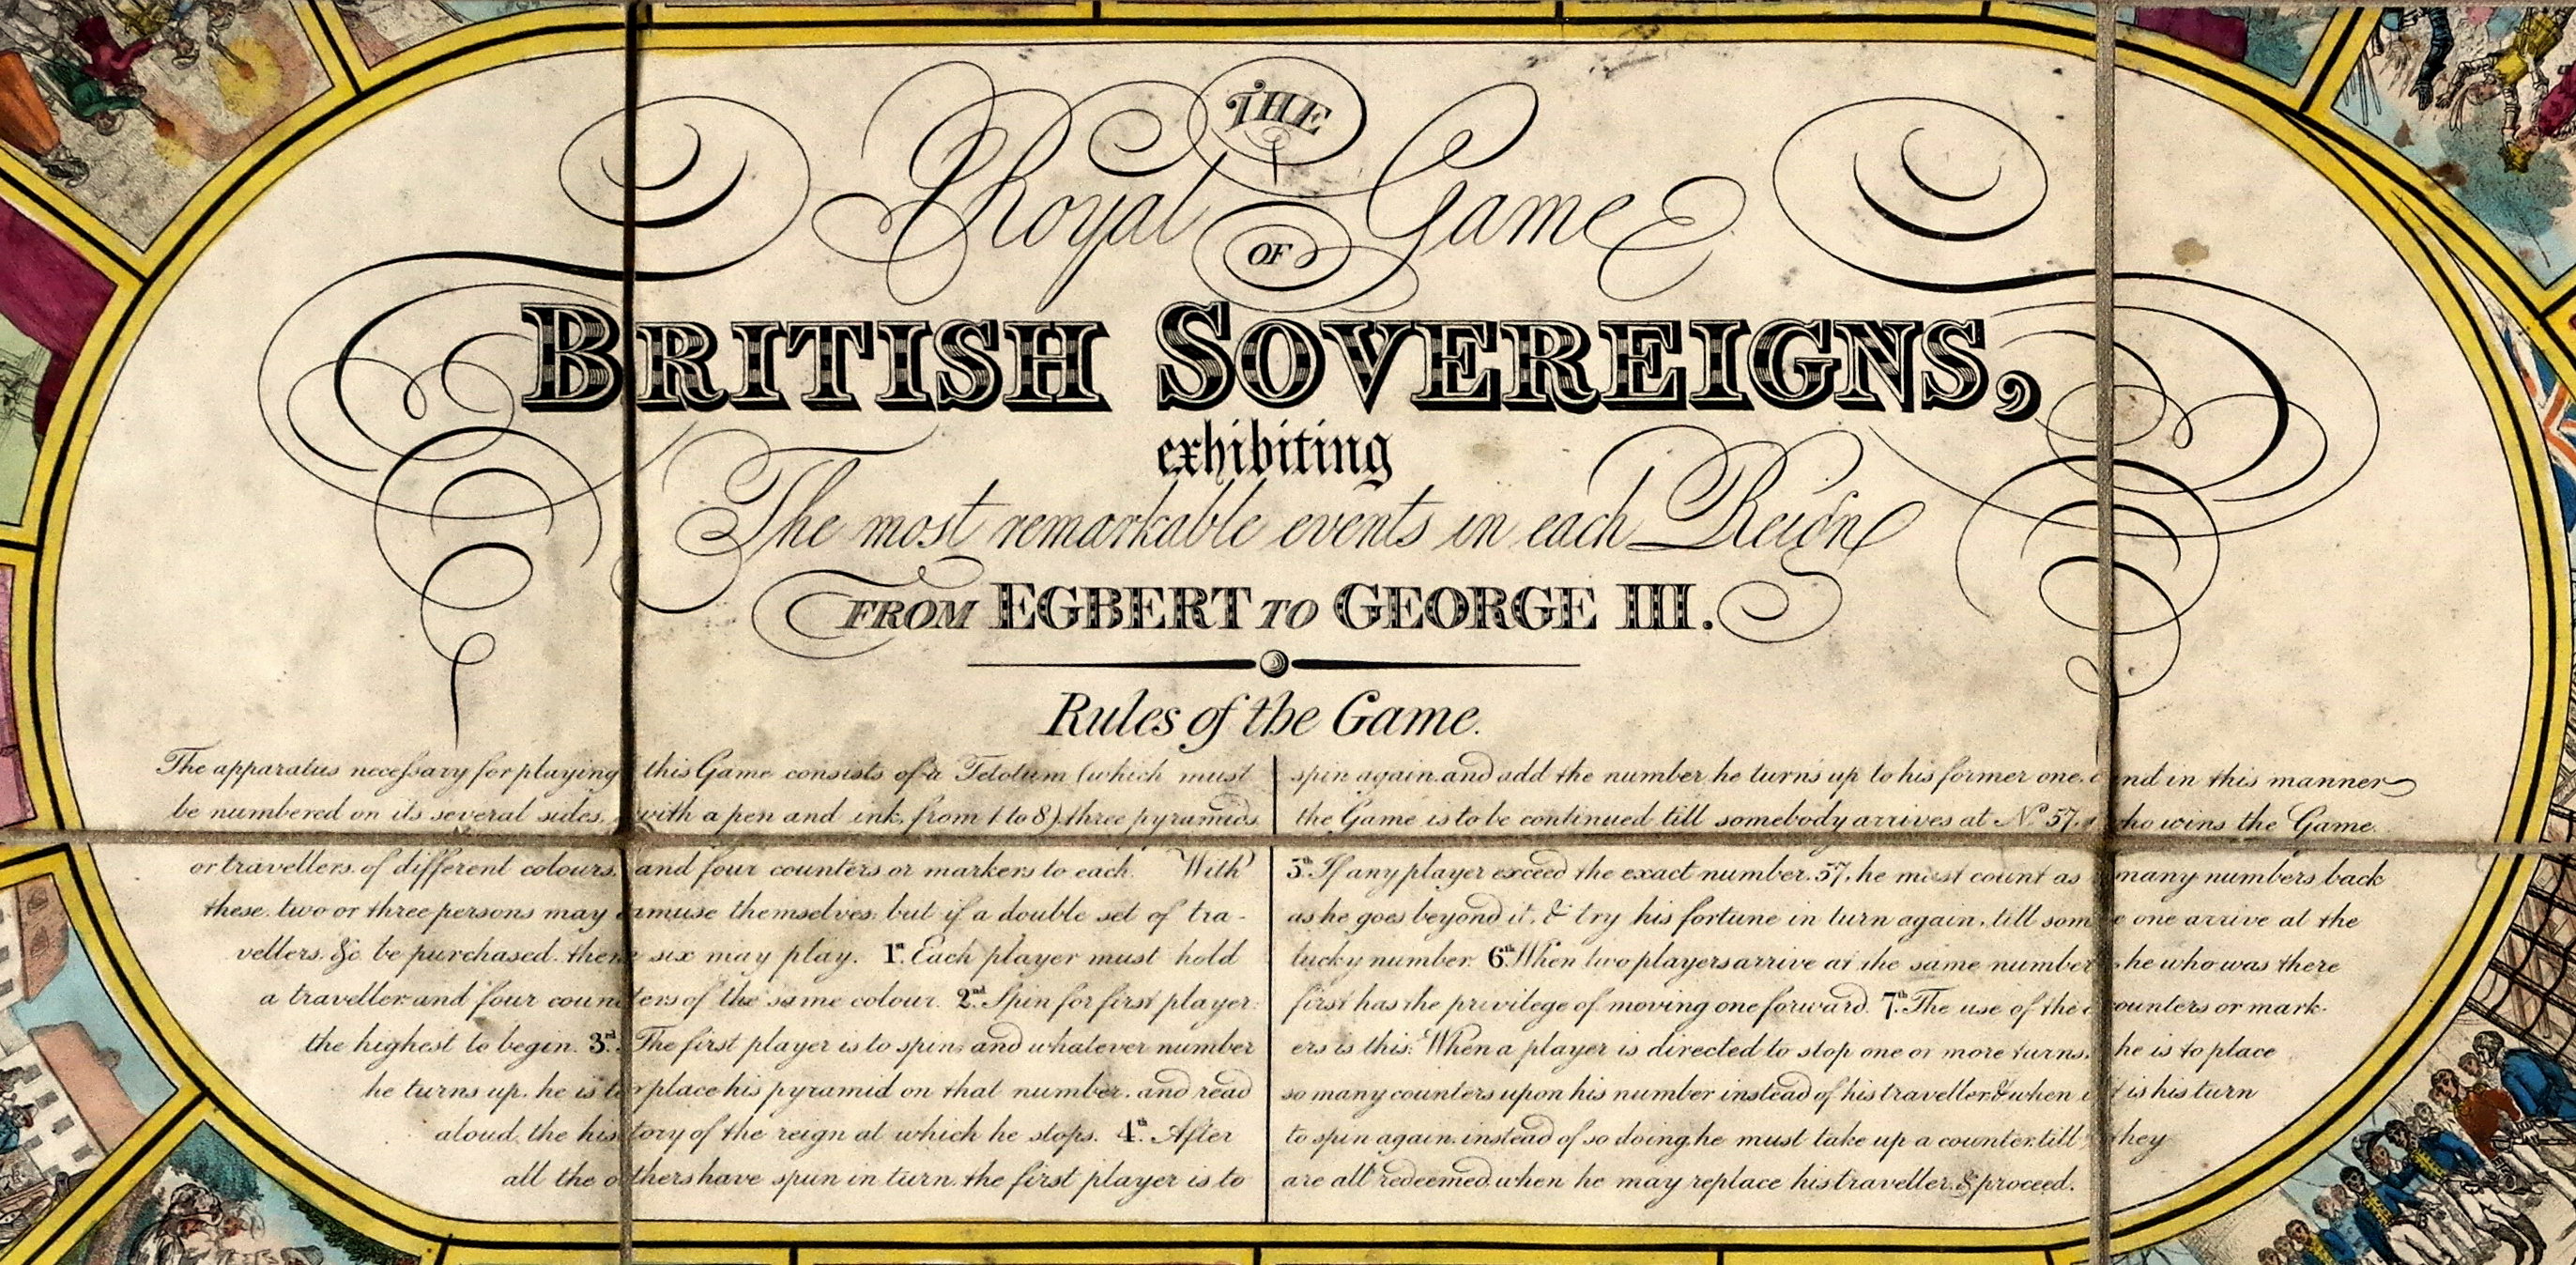 THE
Royal Game
OF
BRITISH SOVEREIGNS,
exhibiting
The most remarkable events in each Reign
FROM EGBERT TO GEORGE III.
Rules of the Game.
The apparatus necessary for playing this Game consists of a Tetotum (which must
be numbered on its several sides, with a pen and ink, from 1 to 8) three pyramids
or travellers, of different colours, and four counters or markers to each. With
these, two or three persons may amuse themselves; but if a double set of tra-
vellers, &c be purchased, then six may play. 1st. Each player must hold
a traveller and four counters of the same colour. 2nd. Spin for first player;
the highest to begin. 3rd. The first player is to spin, and whatever number
he turns up, he is to place his pyramid on that number, and read
aloud, the history of the reign at which he stops. 4th. After
all the others have spun in turn, the first player is to
spin again, and add the number he turns up to his former one, and in this manner
the Game is to be continued till somebody arrives at No. 57, who wins the Game.
5th. If any player exceed the exact number, 57, he must count as many numbers back
as he goes beyond it, & try his fortune in turn again, till some one arrive at the
lucky number. 6th. When two players arrive at the same number, he who was there
first has the privilege of moving one forward. 7th. The use of the counters or mark-
ers is this: When a player is directed to stop one or more turns, he is to place
so many counters upon his number instead of his traveller, & when it is his turn
to spin again, instead of so doing, he must take up a counter, till they
are all redeemed, when he may replace his traveller, & proceed.